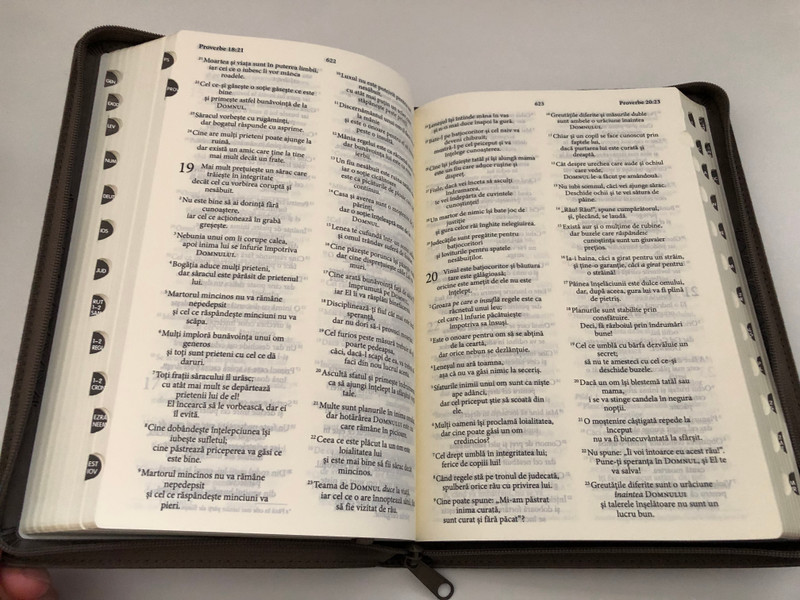 Proverbe 18:21
622
21Moartea și viața sunt în puterea limbii,
iar cel ce o iubesc îi vor mânca
roadele.
22Cel ce-și găsește o soție găsește ce este
bine
și primește astfel bunăvoință de la
DOMNUL.
23Săracul vorbește cu rugăminți,
dar bogatul răspunde cu asprime.
24Cine are mulți prieteni poate ajunge la
ruină,
dar există un amic care ține la tine
mai mult decât un frate.
19 Mai mult prețuiește un sărac care
trăiește în integritate
decât cel cu vorbirea coruptă și
nesăbuit.
2Nu este bine să ai dorință fără
cunoaștere,
iar cel ce acționează în grabă
greșește.
3Nebunia unui om îi corupe calea,
apoi inima lui se înfurie împotriva
DOMNULUI.
4Bogăția aduce mulți prieteni,
dar săracul este părăsit de prietenul
lui.
5Martorul mincinos nu va rămâne
nepedepsit
și cel ce răspândește minciuni nu va
scăpa.
6Mulți imploră bunăvoința unui om
generos
și toți sunt prieteni cu cel ce dă
daruri.
7Toți frații săracului îl urăsc;
cu atât mai mult se depărtează
prietenii lui de el!
El încearcă să le vorbească, dar ei
îl evită.
8Cine dobândește înțelepciunea își
iubește sufletul;
cine păstrează priceperea va găsi ce
este bine.
9Martorul mincinos nu va rămâne
nepedepsit
și cel ce răspândește minciuni va
pieri.
10Luxul nu este
nesăbuit,
cu atât mai puțin
11Discernământul
și este o
12Mânia regelui este ca
dar bunăvoința lui
ierbii.
13Un fiu nesăbuit este
iar o soție
este ca picăturile de
14Casa și averea sunt o
părinți,
dar o soție înțeleaptă
15Lenea te cufundă într-un
și omul trândav
16Cine păzește porunca își
dar cine disprețuiește
muri.
17Cine arată bunăvoință față de
împrumută pe DOMNUL,
iar El îi va răsplăti
18Disciplinează-ți fiul cât mai este
speranță,
dar nu dori să-i
19Cel furios peste măsură trebuie să
poarte pedeapsa,
căci, dacă îl scapi de ea, va trebui să
faci din nou lucrul acesta.
20Ascultă sfatul și primește îndrumarea,
ca să ajungi înțelept la sfârșitul vieții
tale.
21Multe sunt planurile în inima omului,
dar hotărârea DOMNULUI este cea
care rămâne în picioare.
22Ceea ce este plăcut la un om este
loialitatea lui
și este mai bine să fii sărac decât
mincinos.
23Teama de DOMNUL duce la viață,
iar cel ce o are înnoptează sătul, fără
să fie vizitat de rău.
623
Proverbe 20:23
24Leneșul își întinde mâna în vas
și n-o mai duce înapoi la gură.
25Bate-l pe batjocoritor și cel naiv va
deveni chibzuit;
mustră-l pe cel priceput și va
înțelege cunoașterea.
26Cine își jefuiește tatăl și își alungă mama
este un fiu care aduce rușine și
dispreț.
27Fiule, dacă vei înceta să asculți
îndrumarea,
te vei îndepărta de cuvintele
cunoștinței!
28Un martor de nimic își bate joc de
justiție
și gura celor răi înghite nelegiuirea.
29Judecățile sunt pregătite pentru
batjocoritori
și loviturile pentru spatele
nesăbuiților.
20 Vinul este batjocoritor și băutura
tare este gălăgioasă;
oricine este amețit de ele nu este
înțelept.
2Groaza pe care o insuflă regele este ca
răcnetul unui leu;
cel care-l înfurie păcătuiește
împotriva sa însuși.
3Este o onoare pentru om să se abțină
de la ceartă,
dar orice nebun se dezlănțuie.
4Leneșul nu ară toamna,
așa că nu va găsi nimic la seceriș.
5Sfaturile inimii unui om sunt ca niște
ape adânci,
dar cel priceput știe să scoată din
ele.
6Mulți oameni își proclamă loialitatea,
dar cine poate găsi un om
credincios?
7Cel drept umblă în integritatea lui;
ferice de copiii lui!
8Când regele stă pe tronul de judecată,
spulberă orice rău cu privirea lui.
9Cine poate spune: „Mi-am păstrat
inima curată,
sunt curat și fără păcat”?
10Greutățile diferite și măsurile duble
sunt ambele o urâciune înaintea
DOMNULUI.
11Chiar și un copil se face cunoscut prin
faptele lui,
dacă purtarea lui este curată și
dreaptă.
12Cât despre urechea care aude și ochiul
care vede,
DOMNUL le-a făcut pe amândouă.
13Nu iubi somnul, căci vei ajunge sărac.
Deschide ochii și te vei sătura de
pâine.
14„Rău! Rău!”, spune cumpărătorul,
și, plecând, se laudă.
15Există aur și o mulțime de rubine,
dar buzele care răspândesc
cunoștința sunt un giuvaier
prețios.
16Ia-i haina, căci a girat pentru un străin,
și ține-o garanție, căci a girat pentru
o străină!
17Pâinea înșelăciunii este dulce omului,
dar, după aceea, gura lui va fi plină
de pietriș.
18Planurile sunt stabilite prin
consfătuire.
Deci, fă războiul prin îndrumări
bune!
19Cel ce umblă cu bârfa dezvăluie un
secret;
să nu te amesteci cu cel ce-și
deschide buzele.
20Dacă un om își blestemă tatăl sau
mama,
i se va stinge candela în negura
nopții.
21O moștenire câștigată repede la
început
nu va fi binecuvântată la sfârșit.
22Nu spune: „Îi voi întoarce eu acest rău!”.
Pune-ți speranța în DOMNUL, și El te
va salva!
23Greutățile diferite sunt o urâciune
înaintea DOMNULUI
și talerele înșelătoare nu sunt un
lucru bun.
GEN
EXOD
LEV
NUM
DEUT
IOS
JUD
RUT
1-2
SAM
1-2
REGI
1-2
CRON
EZRA
NEEM
EST
IOV
PS
PROV